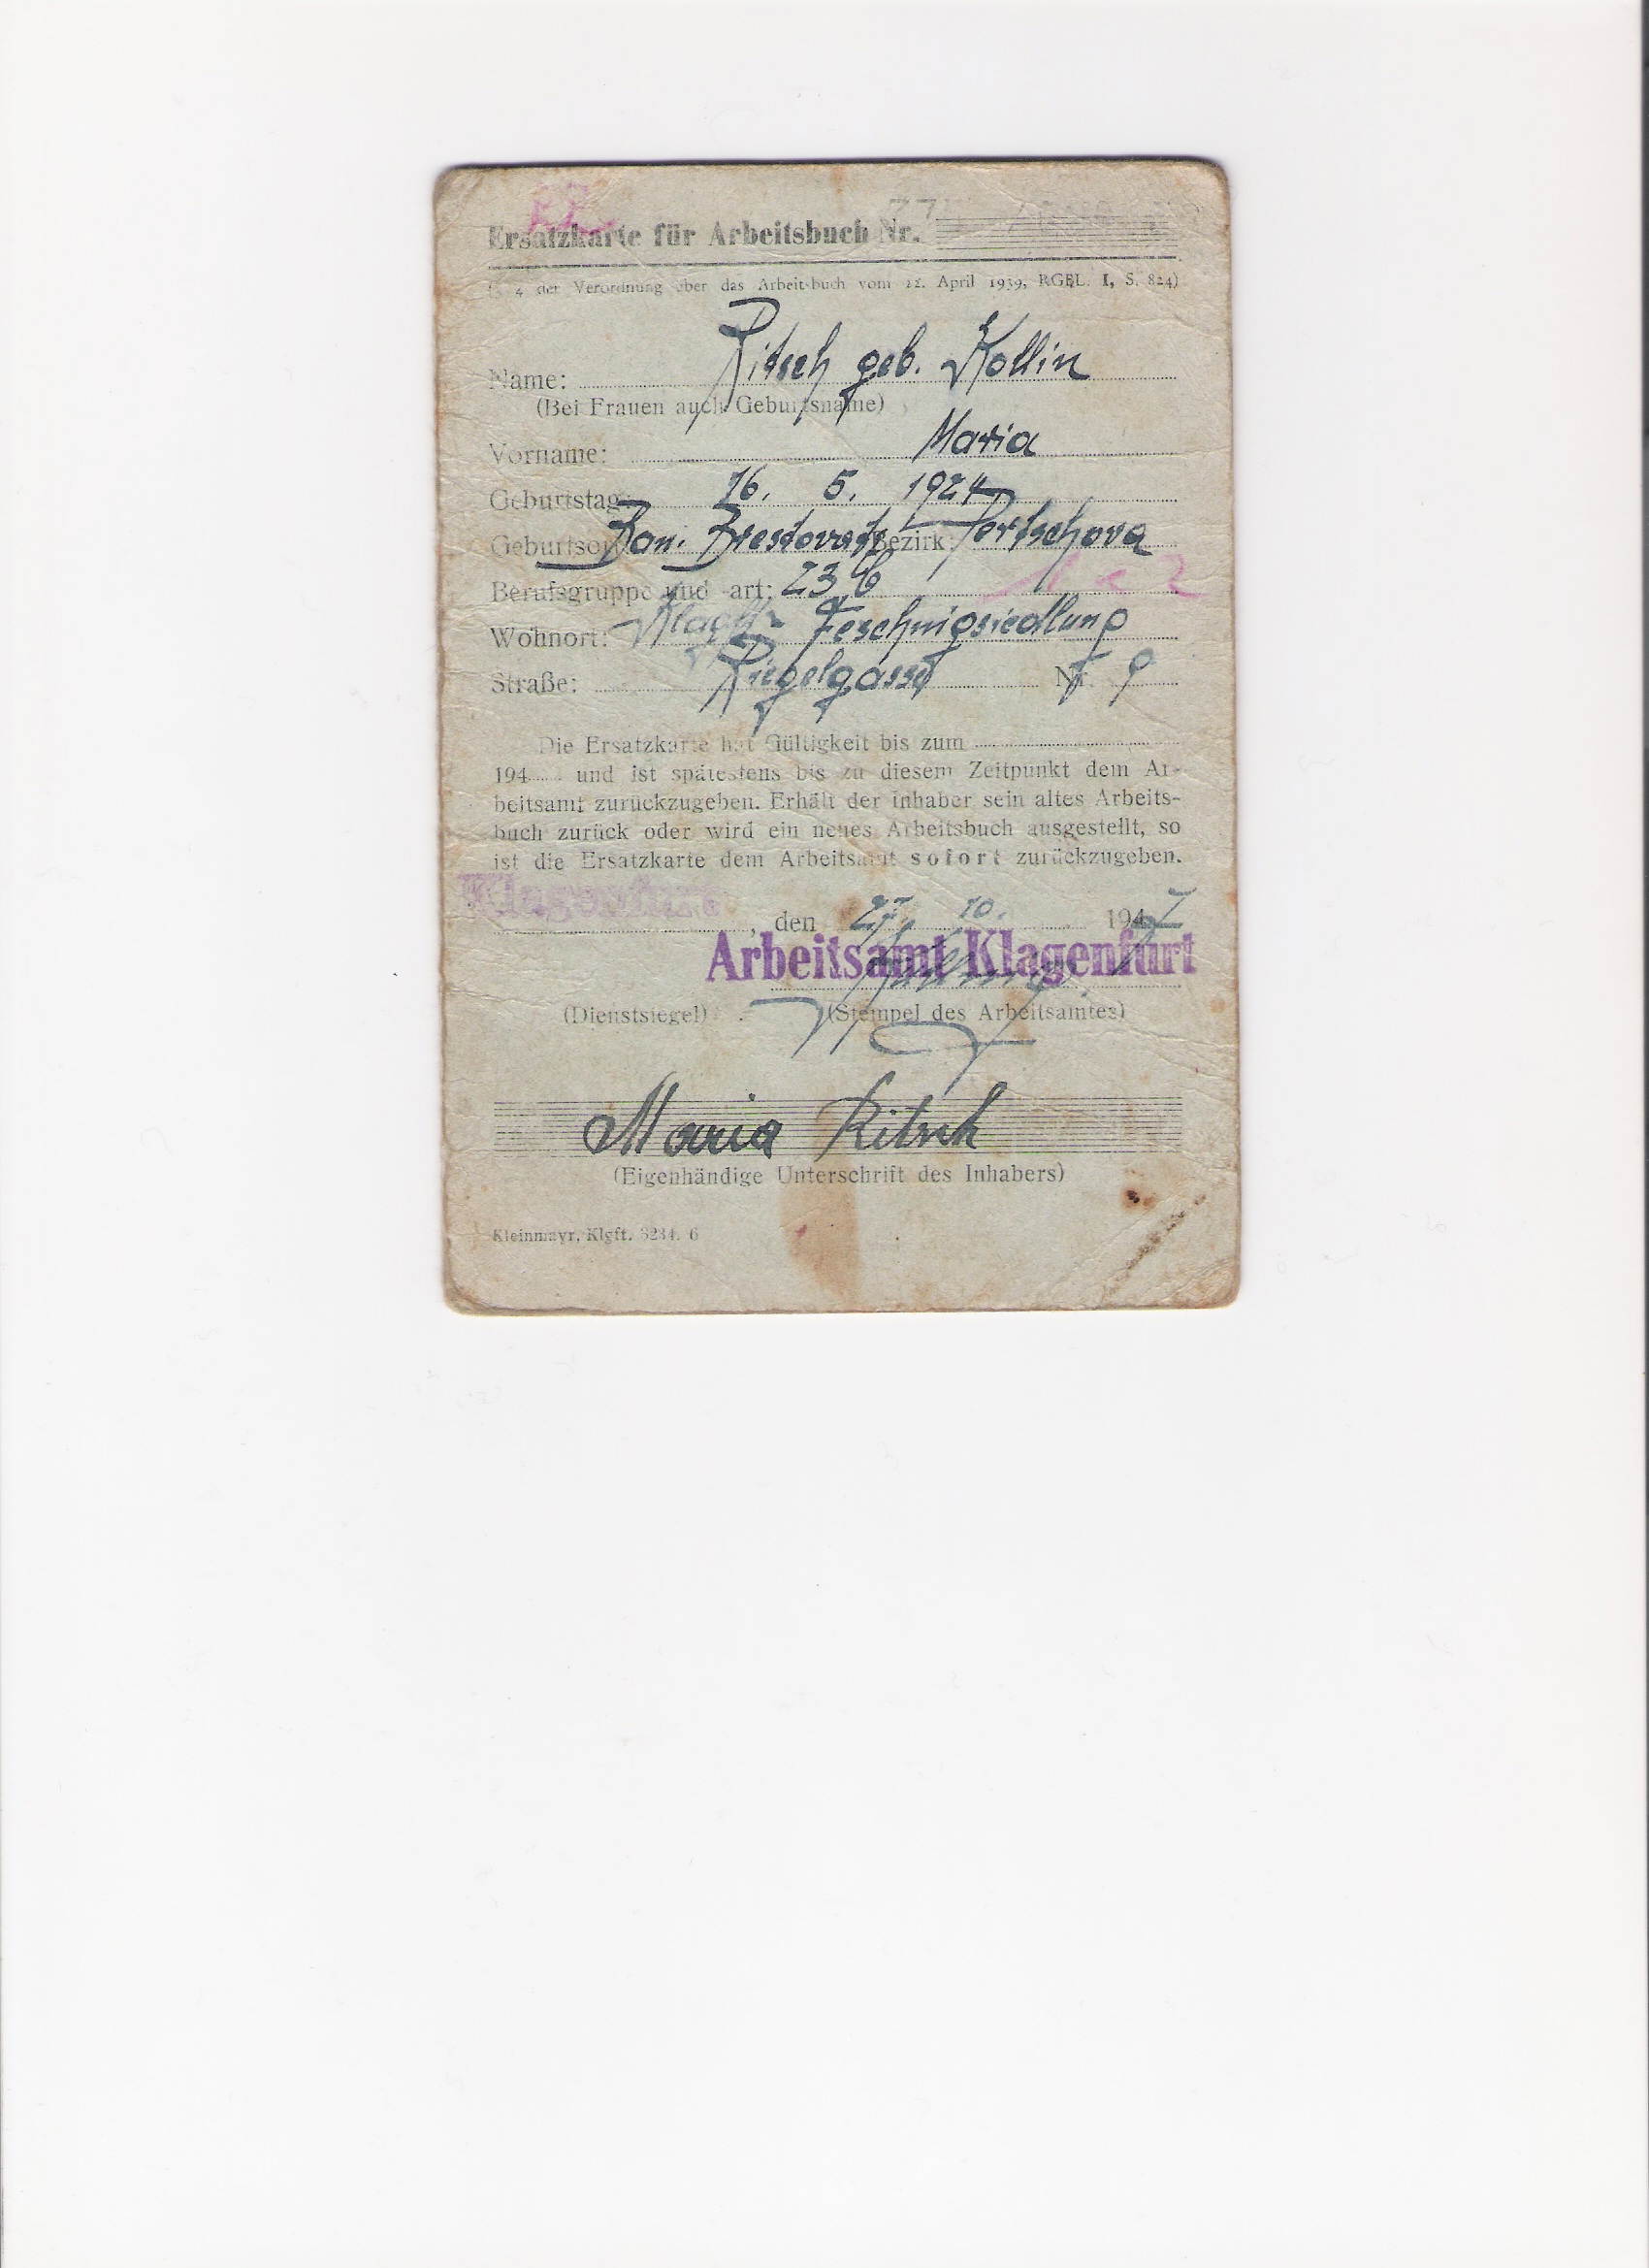 Ersatzkarte für Arbeitsbuch Nr.
(§ 4 der Verordnung über das Arbeitsbuch vom 22. April 1939, RGBL. I, S. 824)
Name: Ritsch geb. Kollin
(Bei Frauen auch Geburtsname)
Vorname: Maria
Geburtstag: 16. 5. 1924
Geburtsort: Ban. Brestovatz Bezirk Pertschova
Berufsgruppe und -art: 23 b
Wohnort: Klagft. Feschnigsiedlung
Straße: Riegelgasse Nr. 9
Die Ersatzkarte hat Gültigkeit bis zum
194 und ist spätestens bis zu diesem Zeitpunkt dem Ar-
beitsamt zurückzugeben. Erhält der Inhaber sein altes Arbeits-
buch zurück oder wird ein neues Arbeitsbuch ausgestellt, so
ist die Ersatzkarte dem Arbeitsamt sofort zurückzugeben.
Klagenfurt, den 27. 10. 1947
Arbeitsamt Klagenfurt
(Dienstsiegel) (Stempel des Arbeitsamtes)
Maria Ritsch
(Eigenhändige Unterschrift des Inhabers)
Kleinmayr, Klgft. 3234. 6